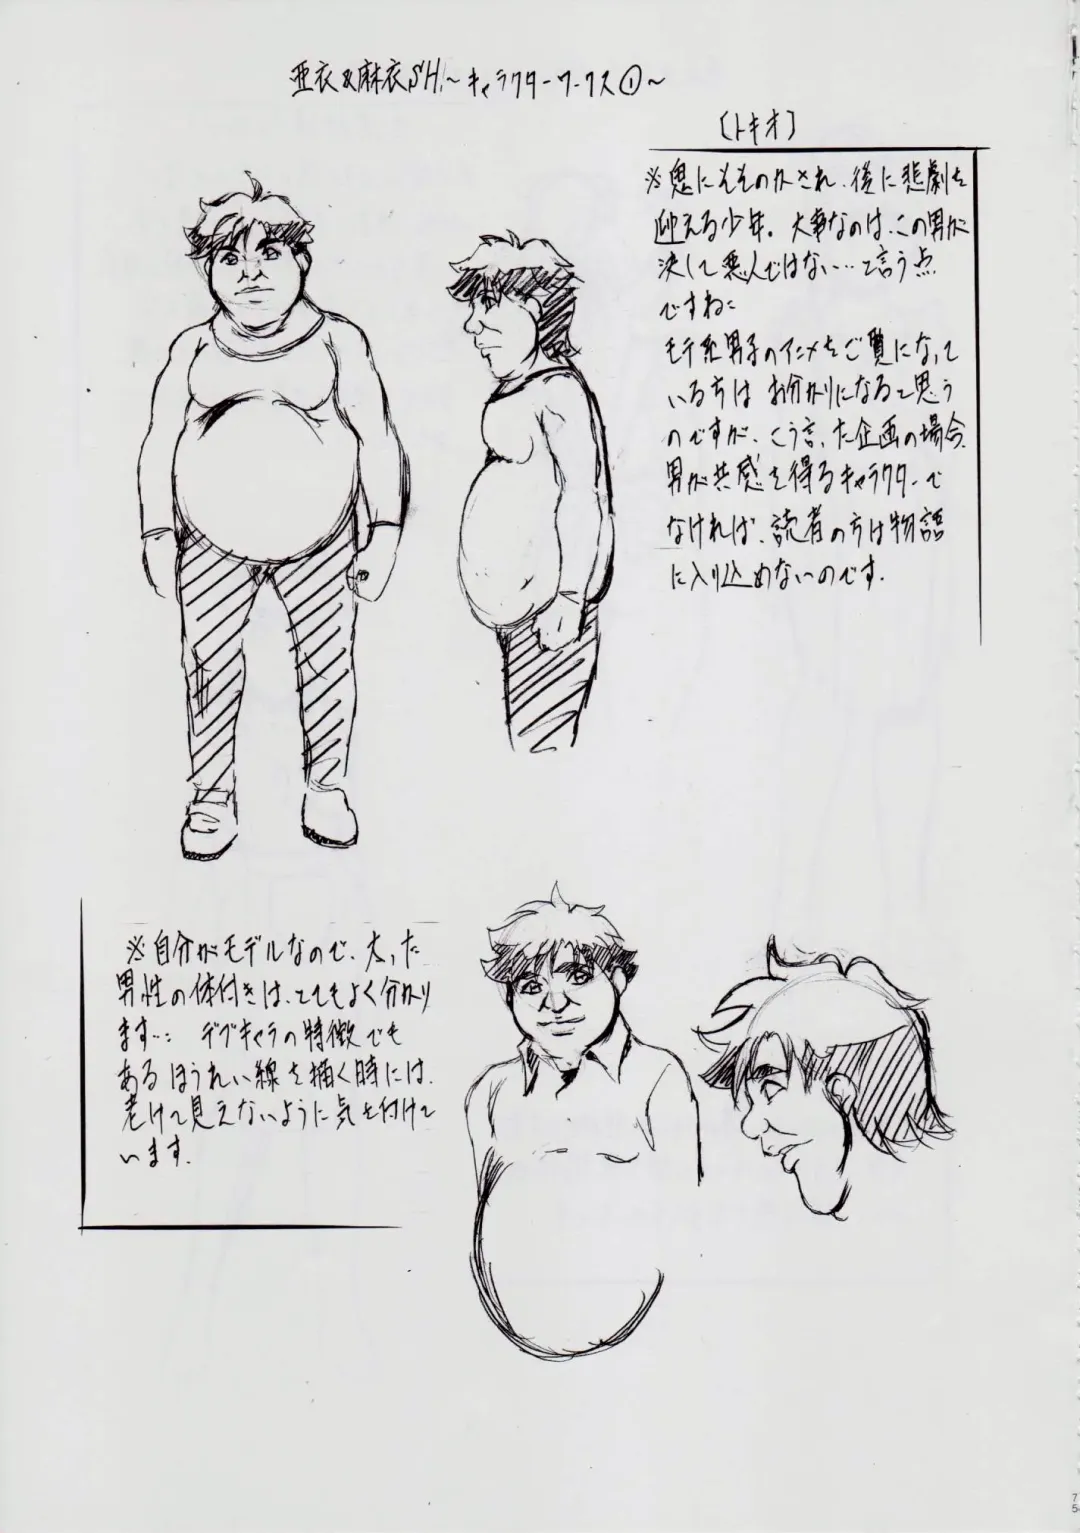 亜衣&麻衣SH!~キャラクターワークス①~
[トキオ]
※鬼にそそのかされ、後に悲劇を
迎える少年。大事なのは、この男が
決して悪人ではない…と言う点
ですね:
モテ系男子のアニメをご覧になって
いる方は お分かりになると思う
のですが、こう言った企画の場合、
男が共感を得るキャラクターで
なければ、読者の方は物語
に入り込めないのです.
※自分がモデルなので、太った
男性の体付きは、とてもよく分かり
ます…: デブキャラの特徴でも
あるほうれい線を描く時には、
老けて見えないように気を付けて
います.
75